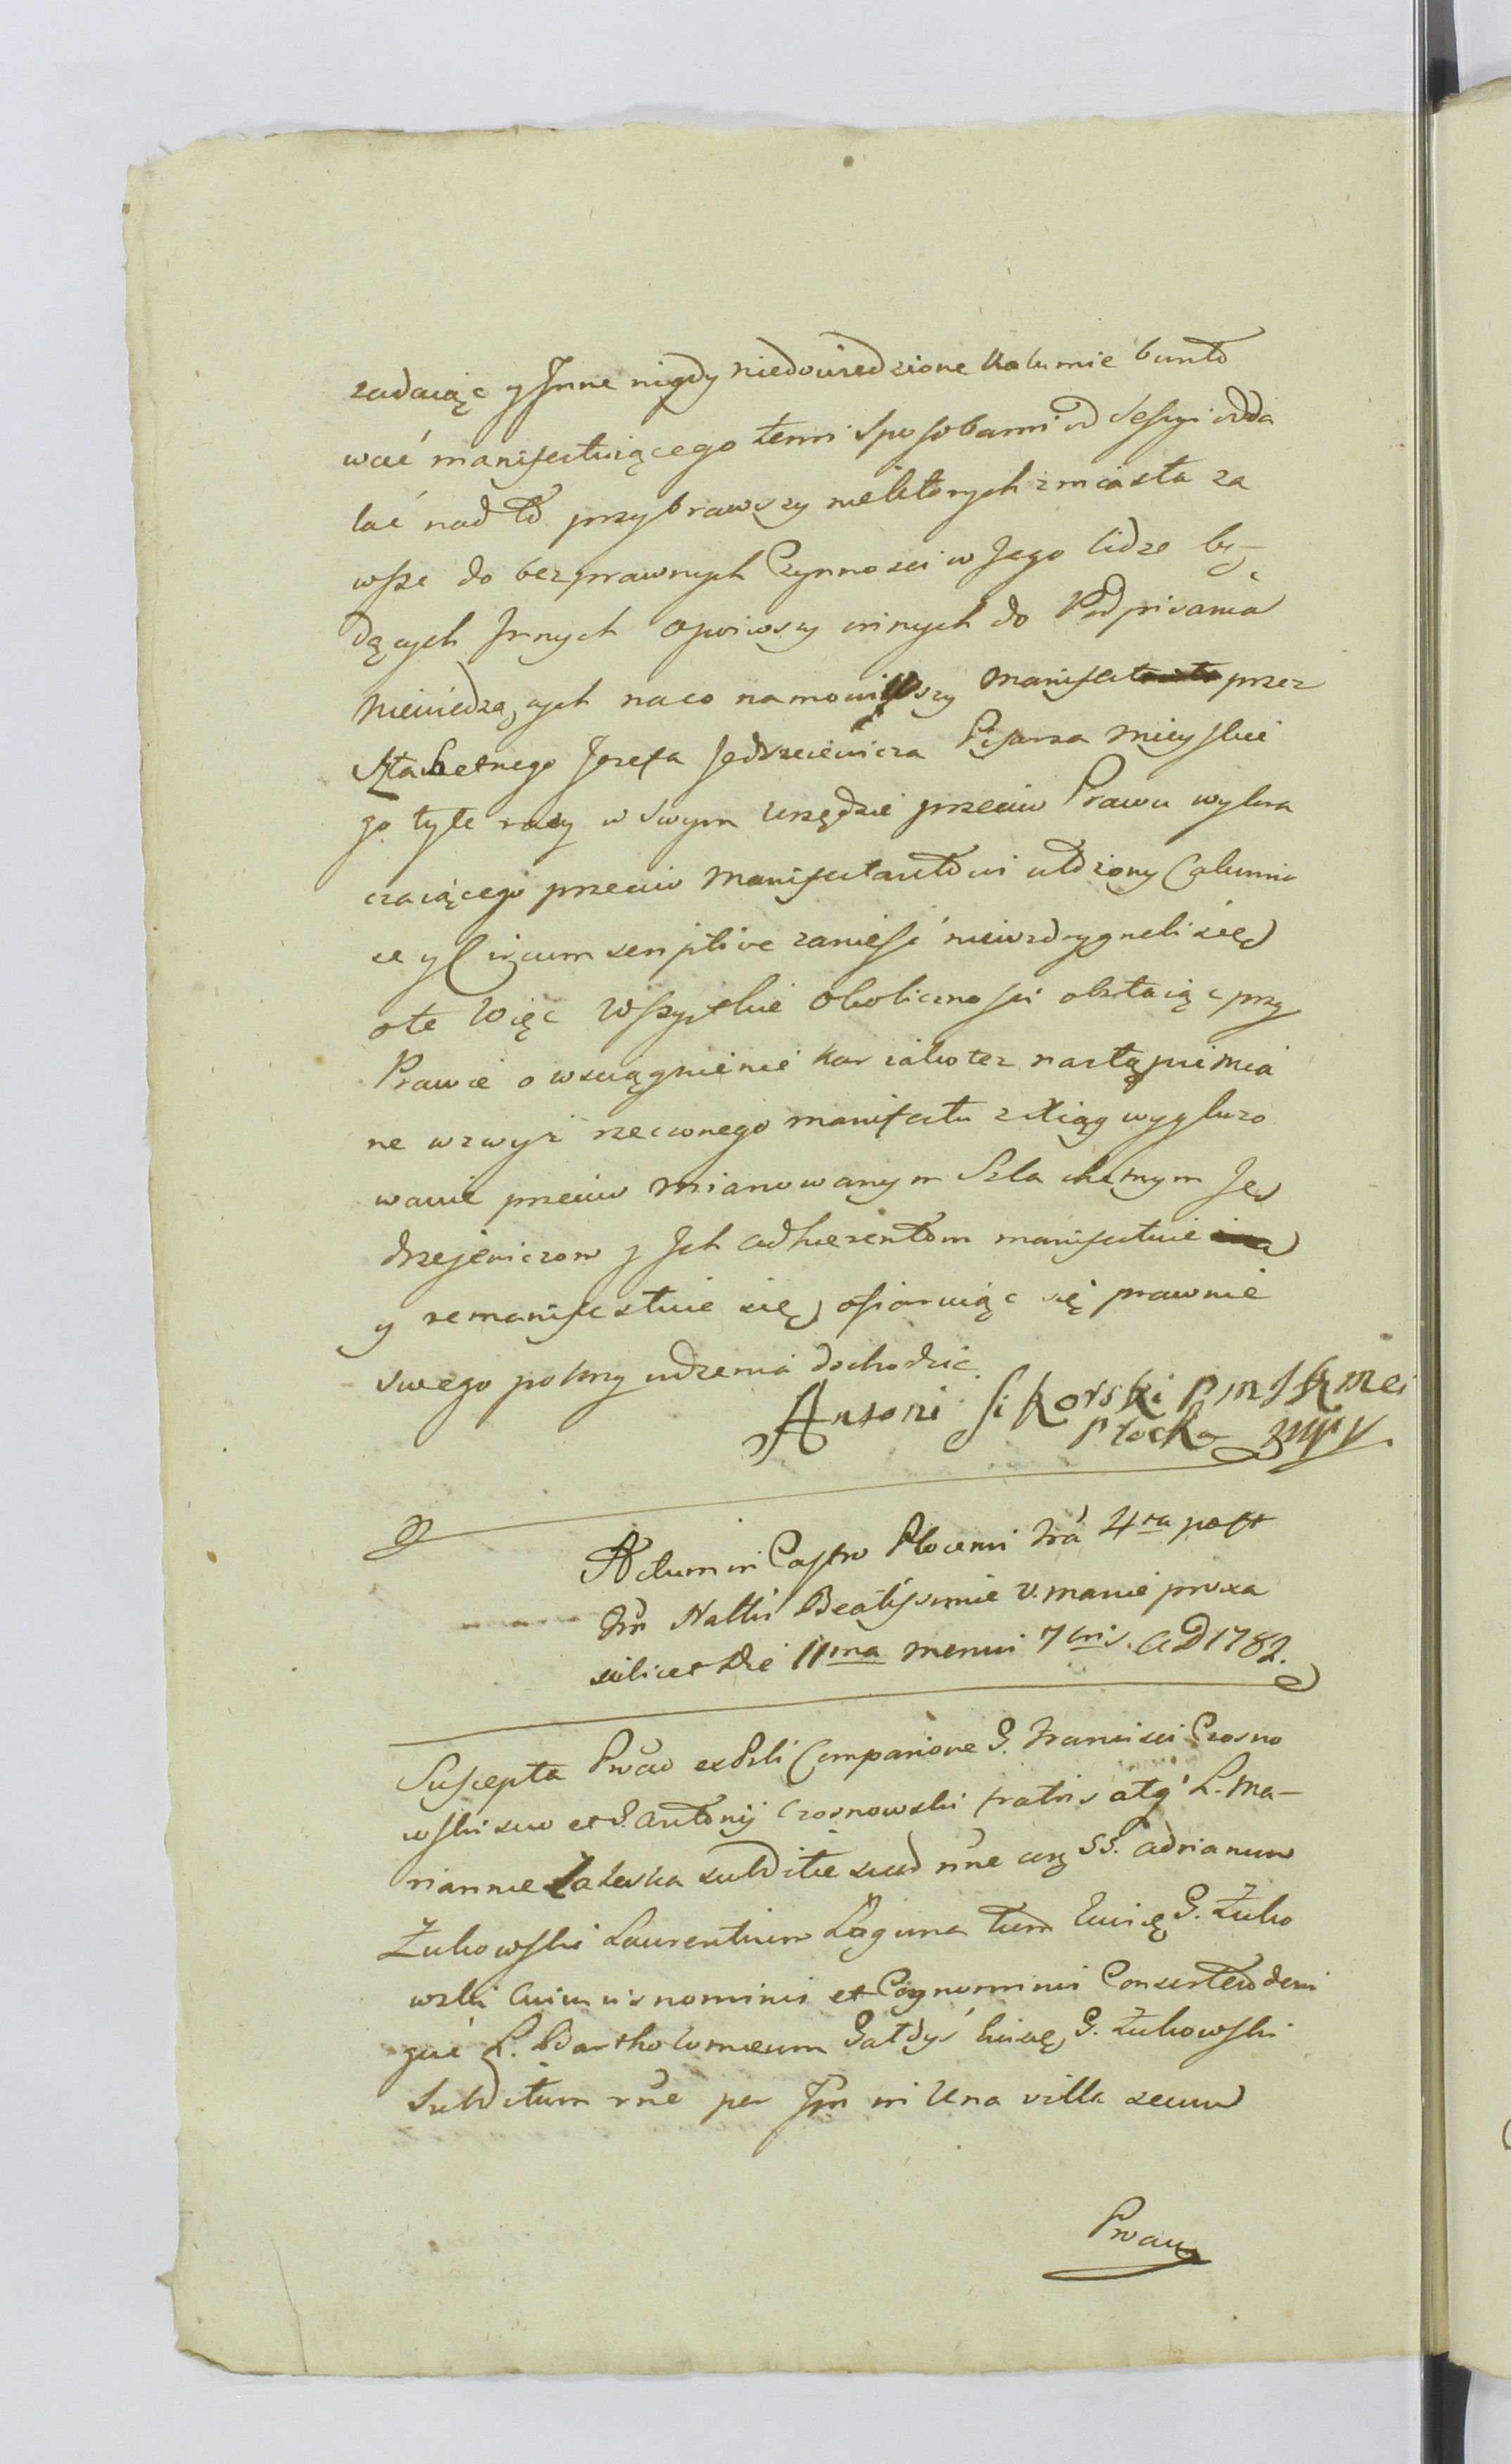 zadaiąc y Jnne nigdy niedowiedzione kalumie bunto
wać manifestuiącego temi sposobami od Sessyi odda
lać nad to przybrawszy niektorych z miasta za
wsze do bezprawnych Czynnosci w Jego lidze bę-
dących Jnnych opoiwszy innych do Podpisania
niewiedzących na co namowiwszy manifest przez
Szlachetnego Jozefa Jędrzeiewicza Pisarza mieyskie
go tyle razy w swym urzędzie przeciw Prawu wykra
czaiącego przeciw manifestantowi utozony Calumnio
se y Circumscriptive zanieść niewzdrygneli się
o te Więc Wszystkie okolicznosci obstaiąc przy
Prawie o wsciągnienie kar iako tez nastąpić mia
ne wzwyż rzeczonego manifestu z Xiąg wygluzo
wanie przeciw mianowanym Szlachetnym Jęd
drzejewiczom y Jch adherentom manifestuie
y remanifestuie się ofiaruiąc się prawnie
swego pokrzywdzenia dochodzic
Antoni Sikorski P m J K Mci
Płocka mpp
Actum in Castro Plocensi fria 4ta post
Ftm Nattis Beatissimae V. Mariae proxa
scilicet die 11ma mensis 7bris. AD 1782.
Suscepta Protio ex Psli Comparitione G. Francisci Czosno
wski suo et G. Antonij Czosnowski fratris atq' L. Ma-
riannae Zaleska subditae suae nne ctra SS. Adrianum
Żukowski Laurentium Laguna tum Eundę G. Żuko
wski Cuiusvis nominis et Cognominis Consortem deni
que L. Bartholomaeum Gałdyś Eiusdę G. Żukowski
Subditum rne per Jpm in Una villa secum
Protiu